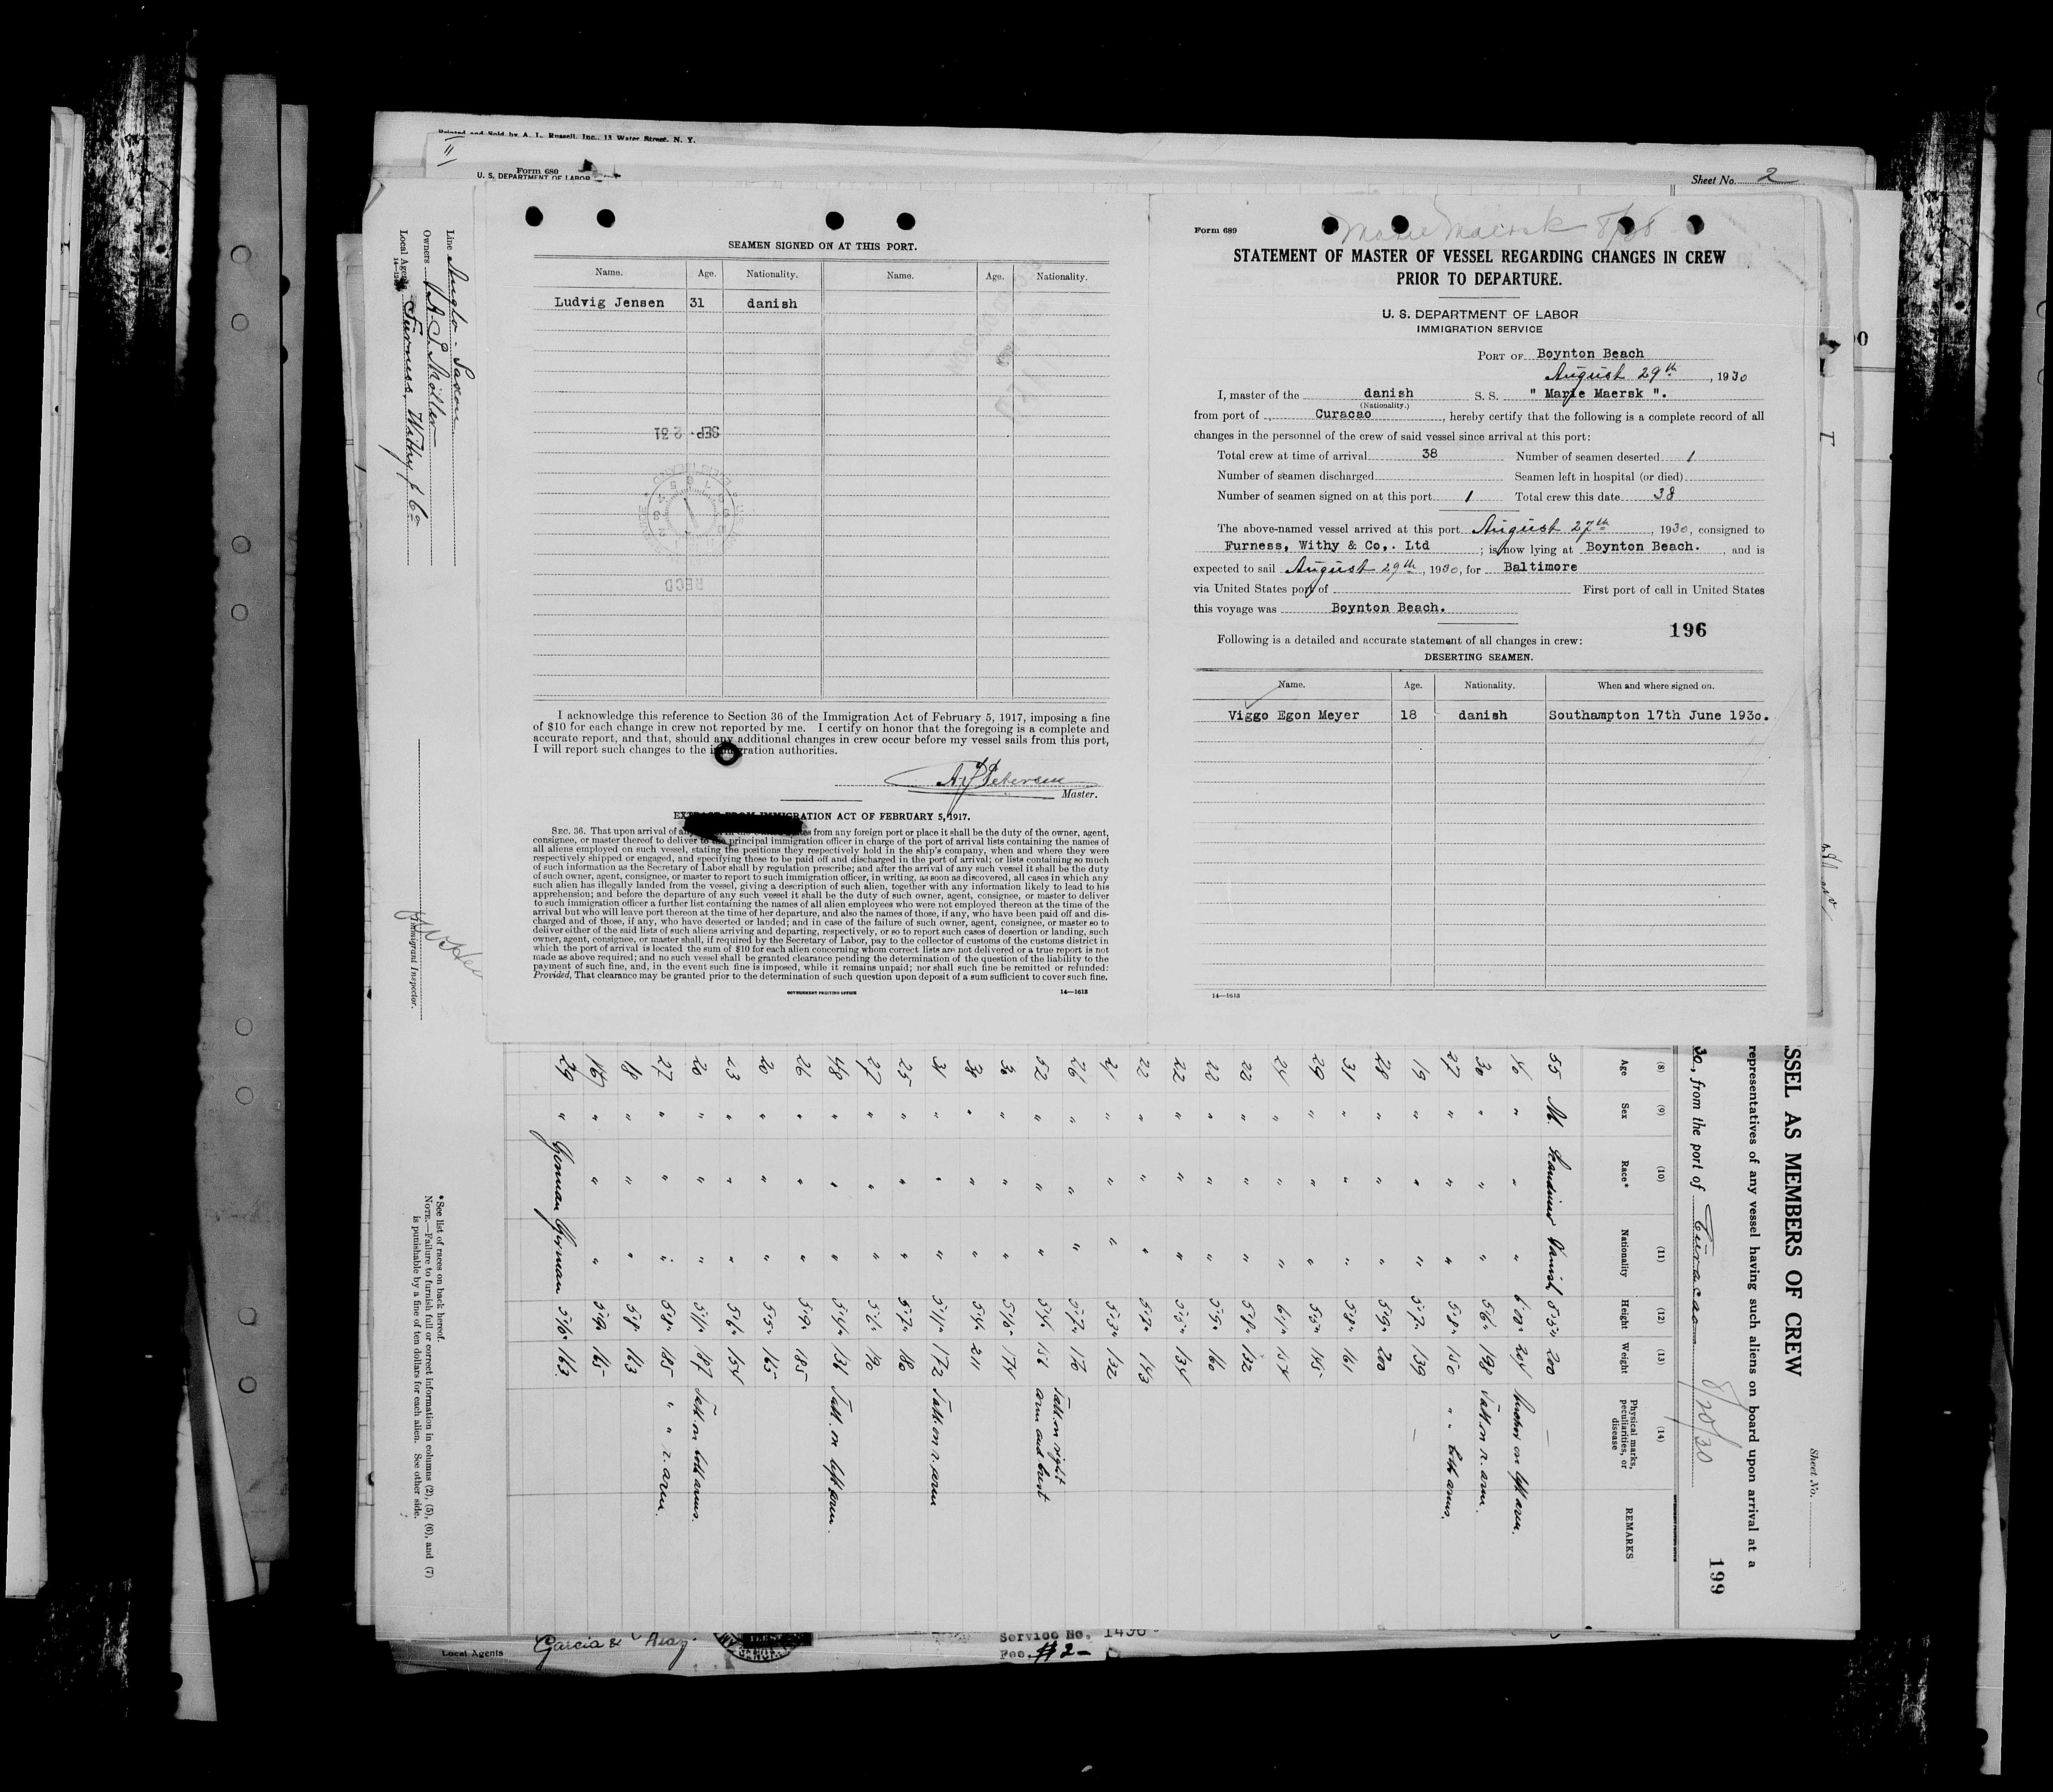 Printed and Sold by A. L. Russell, Inc., 13 Water Street, N. Y.
Form 680
U. S. DEPARTMENT OF LABOR
Sheet No. 2
SEAMEN SIGNED ON AT THIS PORT.
Name. Age. Nationality. Name. Age. Nationality.
Ludvig Jensen 31 danish
SEP. 2 31
RECD
I acknowledge this reference to Section 36 of the Immigration Act of February 5, 1917, imposing a fine
of $10 for each change in crew not reported by me. I certify on honor that the foregoing is a complete and
accurate report, and that, should any additional changes in crew occur before my vessel sails from this port,
I will report such changes to the immigration authorities.
Petersen
Master.
EXTRACT FROM IMMIGRATION ACT OF FEBRUARY 5, 1917.
SEC. 36. That upon arrival of any from any foreign port or place it shall be the duty of the owner, agent,
consignee, or master thereof to deliver to the principal immigration officer in charge of the port of arrival lists containing the names of
all aliens employed on such vessel, stating the positions they respectively hold in the ship's company, when and where they were
respectively shipped or engaged, and specifying those to be paid off and discharged in the port of arrival; or lists containing so much
of such information as the Secretary of Labor shall by regulation prescribe; and after the arrival of any such vessel it shall be the duty
of such owner, agent, consignee, or master to report to such immigration officer, in writing, as soon as discovered, all cases in which any
such alien has illegally landed from the vessel, giving a description of such alien, together with any information likely to lead to his
apprehension; and before the departure of any such vessel it shall be the duty of such owner, agent, consignee, or master to deliver
to such immigration officer a further list containing the names of all alien employees who were not employed thereon at the time of the
arrival but who will leave port thereon at the time of her departure, and also the names of those, if any, who have been paid off and dis-
charged and of those, if any, who have deserted or landed; and in case of the failure of such owner, agent, consignee, or master so to
deliver either of the said lists of such aliens arriving and departing, respectively, or so to report such cases of desertion or landing, such
owner, agent, consignee, or master shall, if required by the Secretary of Labor, pay to the collector of customs of the customs district in
which the port of arrival is located the sum of $10 for each alien concerning whom correct lists are not delivered or a true report is not
made as above required; and no such vessel shall be granted clearance pending the determination of the question of the liability to the
payment of such fine, and, in the event such fine is imposed, while it remains unpaid; nor shall such fine be remitted or refunded:
Provided, That clearance may be granted prior to the determination of such question upon deposit of a sum sufficient to cover such fine.
GOVERNMENT PRINTING OFFICE 14—1613
Form 689
Marie Maersk
STATEMENT OF MASTER OF VESSEL REGARDING CHANGES IN CREW
PRIOR TO DEPARTURE.
U. S. DEPARTMENT OF LABOR
IMMIGRATION SERVICE
PORT OF Boynton Beach
August 29th, 1930
I, master of the danish S. S. " Marie Maersk ".
(Nationality.)
from port of Curacao, hereby certify that the following is a complete record of all
changes in the personnel of the crew of said vessel since arrival at this port:
Total crew at time of arrival 38 Number of seamen deserted 1
Number of seamen discharged Seamen left in hospital (or died)
Number of seamen signed on at this port 1 Total crew this date 38
The above-named vessel arrived at this port August 27th, 1930, consigned to
Furness, Withy & Co,. Ltd ; is now lying at Boynton Beach. , and is
expected to sail August 29th, 1930, for Baltimore
via United States port of First port of call in United States
this voyage was Boynton Beach.
196
Following is a detailed and accurate statement of all changes in crew:
DESERTING SEAMEN.
Name. Age. Nationality. When and where signed on.
Viggo Egon Meyer 18 danish Southampton 17th June 1930.
14—1613
Line Anglo-Saxon
Owners
Local Agents Furness, Withy & Co
Immigrant Inspector.
*See list of races on back hereof.
NOTE.—Failure to furnish full or correct information in columns (2), (5), (6), and (7)
is punishable by a fine of ten dollars for each alien. See other side.
Sheet No.
SSEL AS MEMBERS OF CREW
representatives of any vessel having such aliens on board upon arrival at a
30, from the port of Curacao
199
(8) (9) (10) (11) (12) (13) (14)
Age Sex Race* Nationality Height Weight Physical marks, peculiarities, or disease REMARKS
55 M. Danish 5'5" 200 —
" " " 6'0" 204 on left arm.
30 " " " 5'6" 198 Tatt on r. arm.
27 " " " 5'8" 150 " " both arms.
19 " " " 5'7" 139 —
28 " " " 5'9" 200
31 " " " 5'8" 161
29 " " " 5'5" 145
24 " " " 6'1" 174
22 " " " 5'8" 132
22 " " " 5'9" 160
22 " " " 5'5" 134
22 " " " 5'7" 143
21 " " " 5'3" 132
26 " " " 5'7" 170 Tatt on right
52 " " " 5'4" 151 arm and brest
30 " " " 5'10" 174
30 " " " 5'4" 211
31 " " " 5'11" 172 Tatt. on r. arm
25 " " " 5'7" 180
27 " " " 5'6" 190
48 " " " 5'4" 131 Tatt. on left arm.
26 " " " 5'9" 185
20 " " " 5'5" 165
23 " " " 5'6" 154
20 " " " 5'11" 187 Tatt. on both arms.
27 " " " 5'8" 185 " " r. arm.
18 " " " 5'8" 163
" " " 5'9" 165
29 " German German 5'10" 163
Local Agents Garcia &
Service No. 1496
Fee. $2-